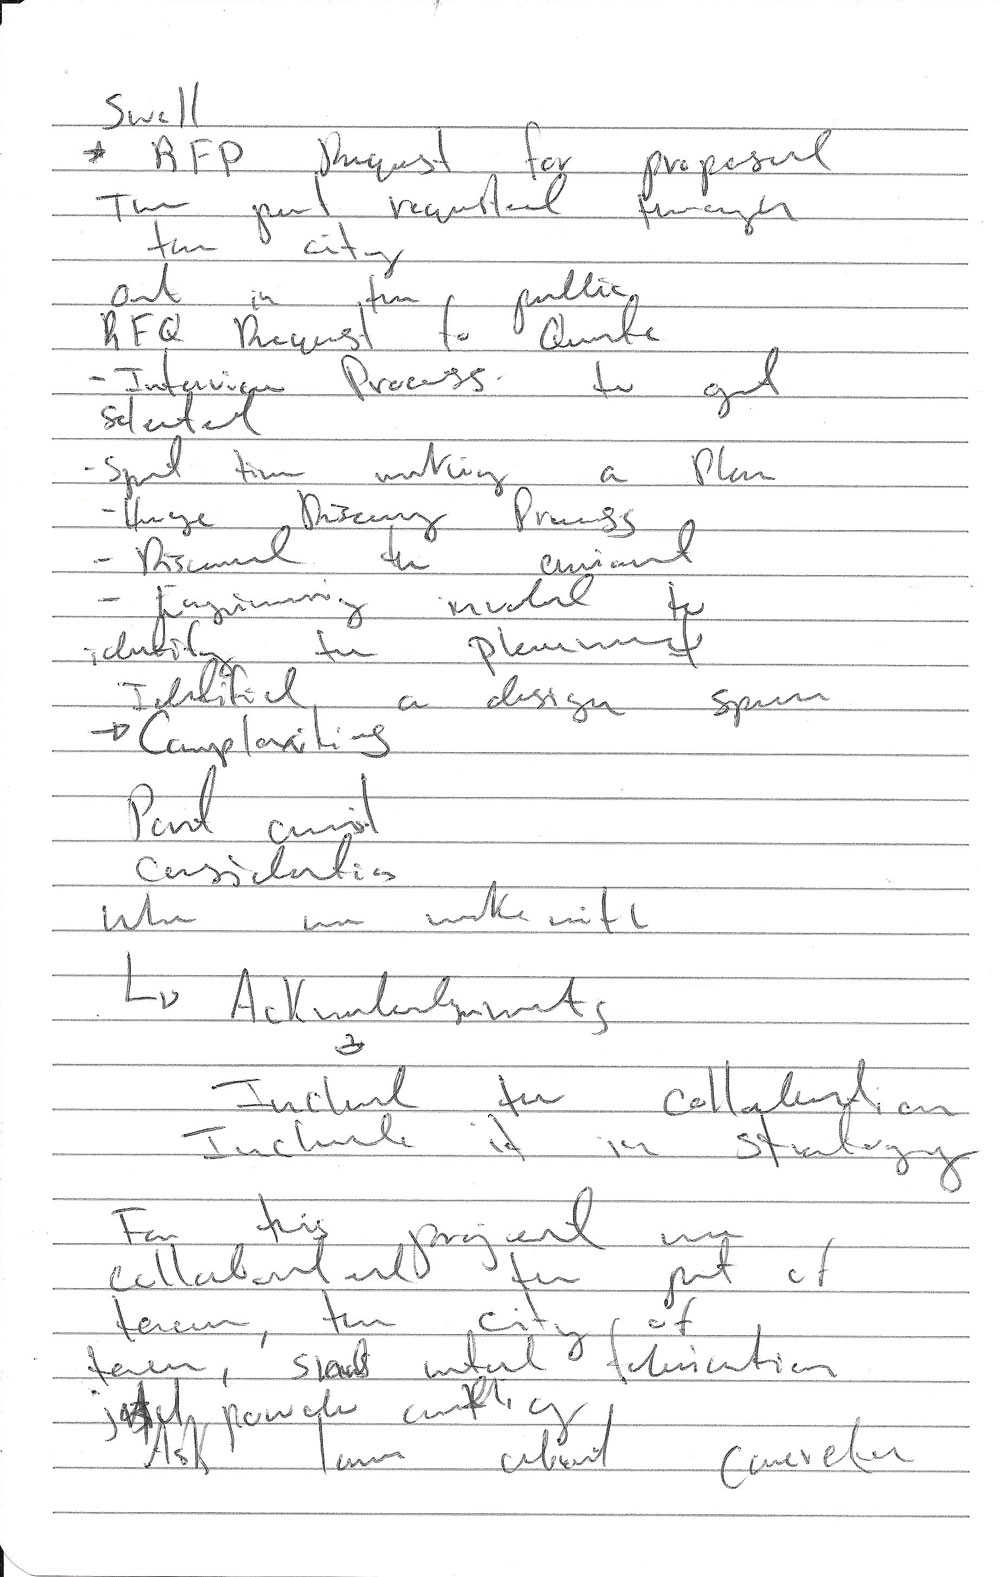 Swell
* RFP Request for proposal
The port requested through
the city
Out in the public
RFQ Request to Quote
- Interview Process to get
selected
- Spent time making a Plan
- Huge Discovery Process
- Discovered the
- Engineering model to
identify the placement
Identified a design
→ Complexities
considerations
When we make
↳ Acknowledgments
Include the collaboration
Include it in strategy
For this project we
collaborated the port of
the city of
metal fabrication
powder
Ask about